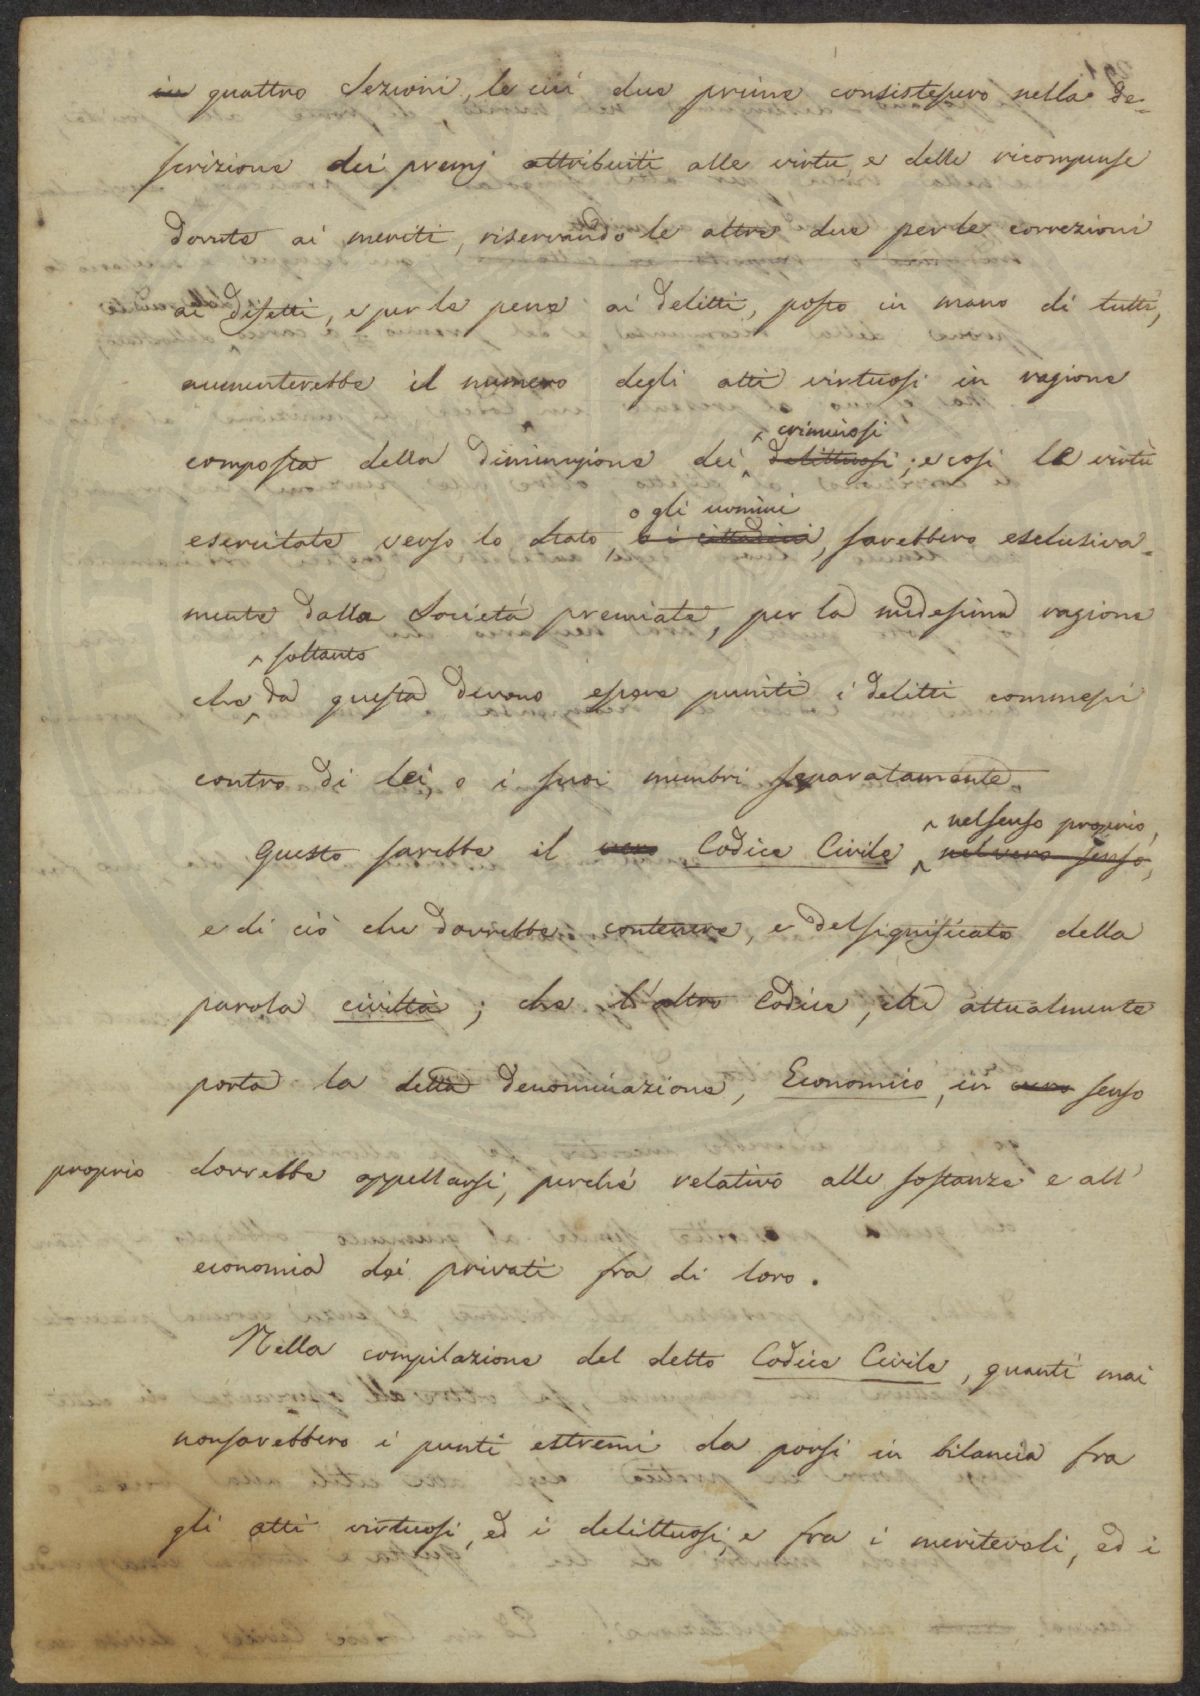 in quattro Sezioni, le cui due prime consistessero nella de=
scrizione dei premj attribuiti alle virtù, e delle ricompense
dovute ai meriti, riservando le altre due per le correzioni
ai difetti, e per le pene ai delitti, posto in mano di tutti,
aumenterebbe il numero degli atti virtuosi in ragione
criminosi
composta della diminuzione dei delittuosi; e così le virtù
o gli uomini
esercitate verso lo Stato, o i cittadini, sarebbero esclusiva=
mente dalla Società premiate, per la medesima ragione
soltanto
che da questa devono essere puniti i delitti commessi
contro di lei, o i suoi membri separatamente.
nel senso proprio,
Questo sarebbe il vero Codice Civile nel vero senso,
e di ciò che dovrebbe contenere, e del significato della
parola civiltà; che l'altro Codice, che attualmente
porta la detta denominazione, Economico, in vero senso
proprio dovrebbe appellarsi, perché relativo alle sostanze e all'
economia dei privati fra di loro.
Nella compilazione del detto Codice Civile, quanti mai
non sarebbero i punti estremi da porsi in bilancia fra
gli atti virtuosi, ed i delittuosi, e fra i meritevoli, ed i